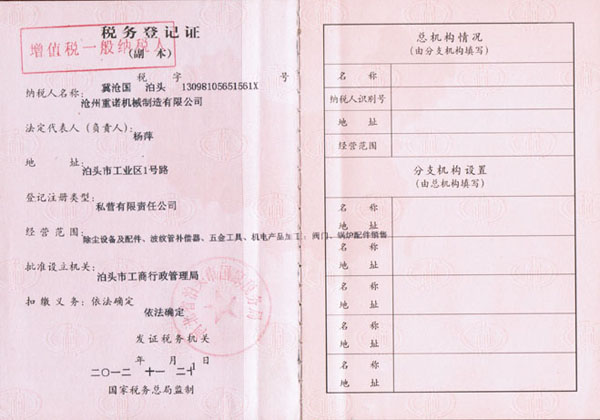 税务登记证
(副本)
增值税一般纳税人
税 字 号
冀沧国 泊头 13098105651561X
纳税人名称:
沧州重诺机械制造有限公司
法定代表人(负责人):
杨萍
地 址:
泊头市工业区1号路
登记注册类型:
私营有限责任公司
经营范围:
除尘设备及配件、波纹管补偿器、五金工具、机电产品加工;阀门、锅炉配件销售
批准设立机关:
泊头市工商行政管理局
扣缴义务:依法确定
依法确定
发证税务机关
年 月 日
二〇一二 十一 二十
国家税务总局监制
总机构情况
(由分支机构填写)
名 称
纳税人识别号
地 址
经营范围
分支机构设置
(由总机构填写)
名 称
地 址
名 称
地 址
名 称
地 址
名 称
地 址
名 称
地 址